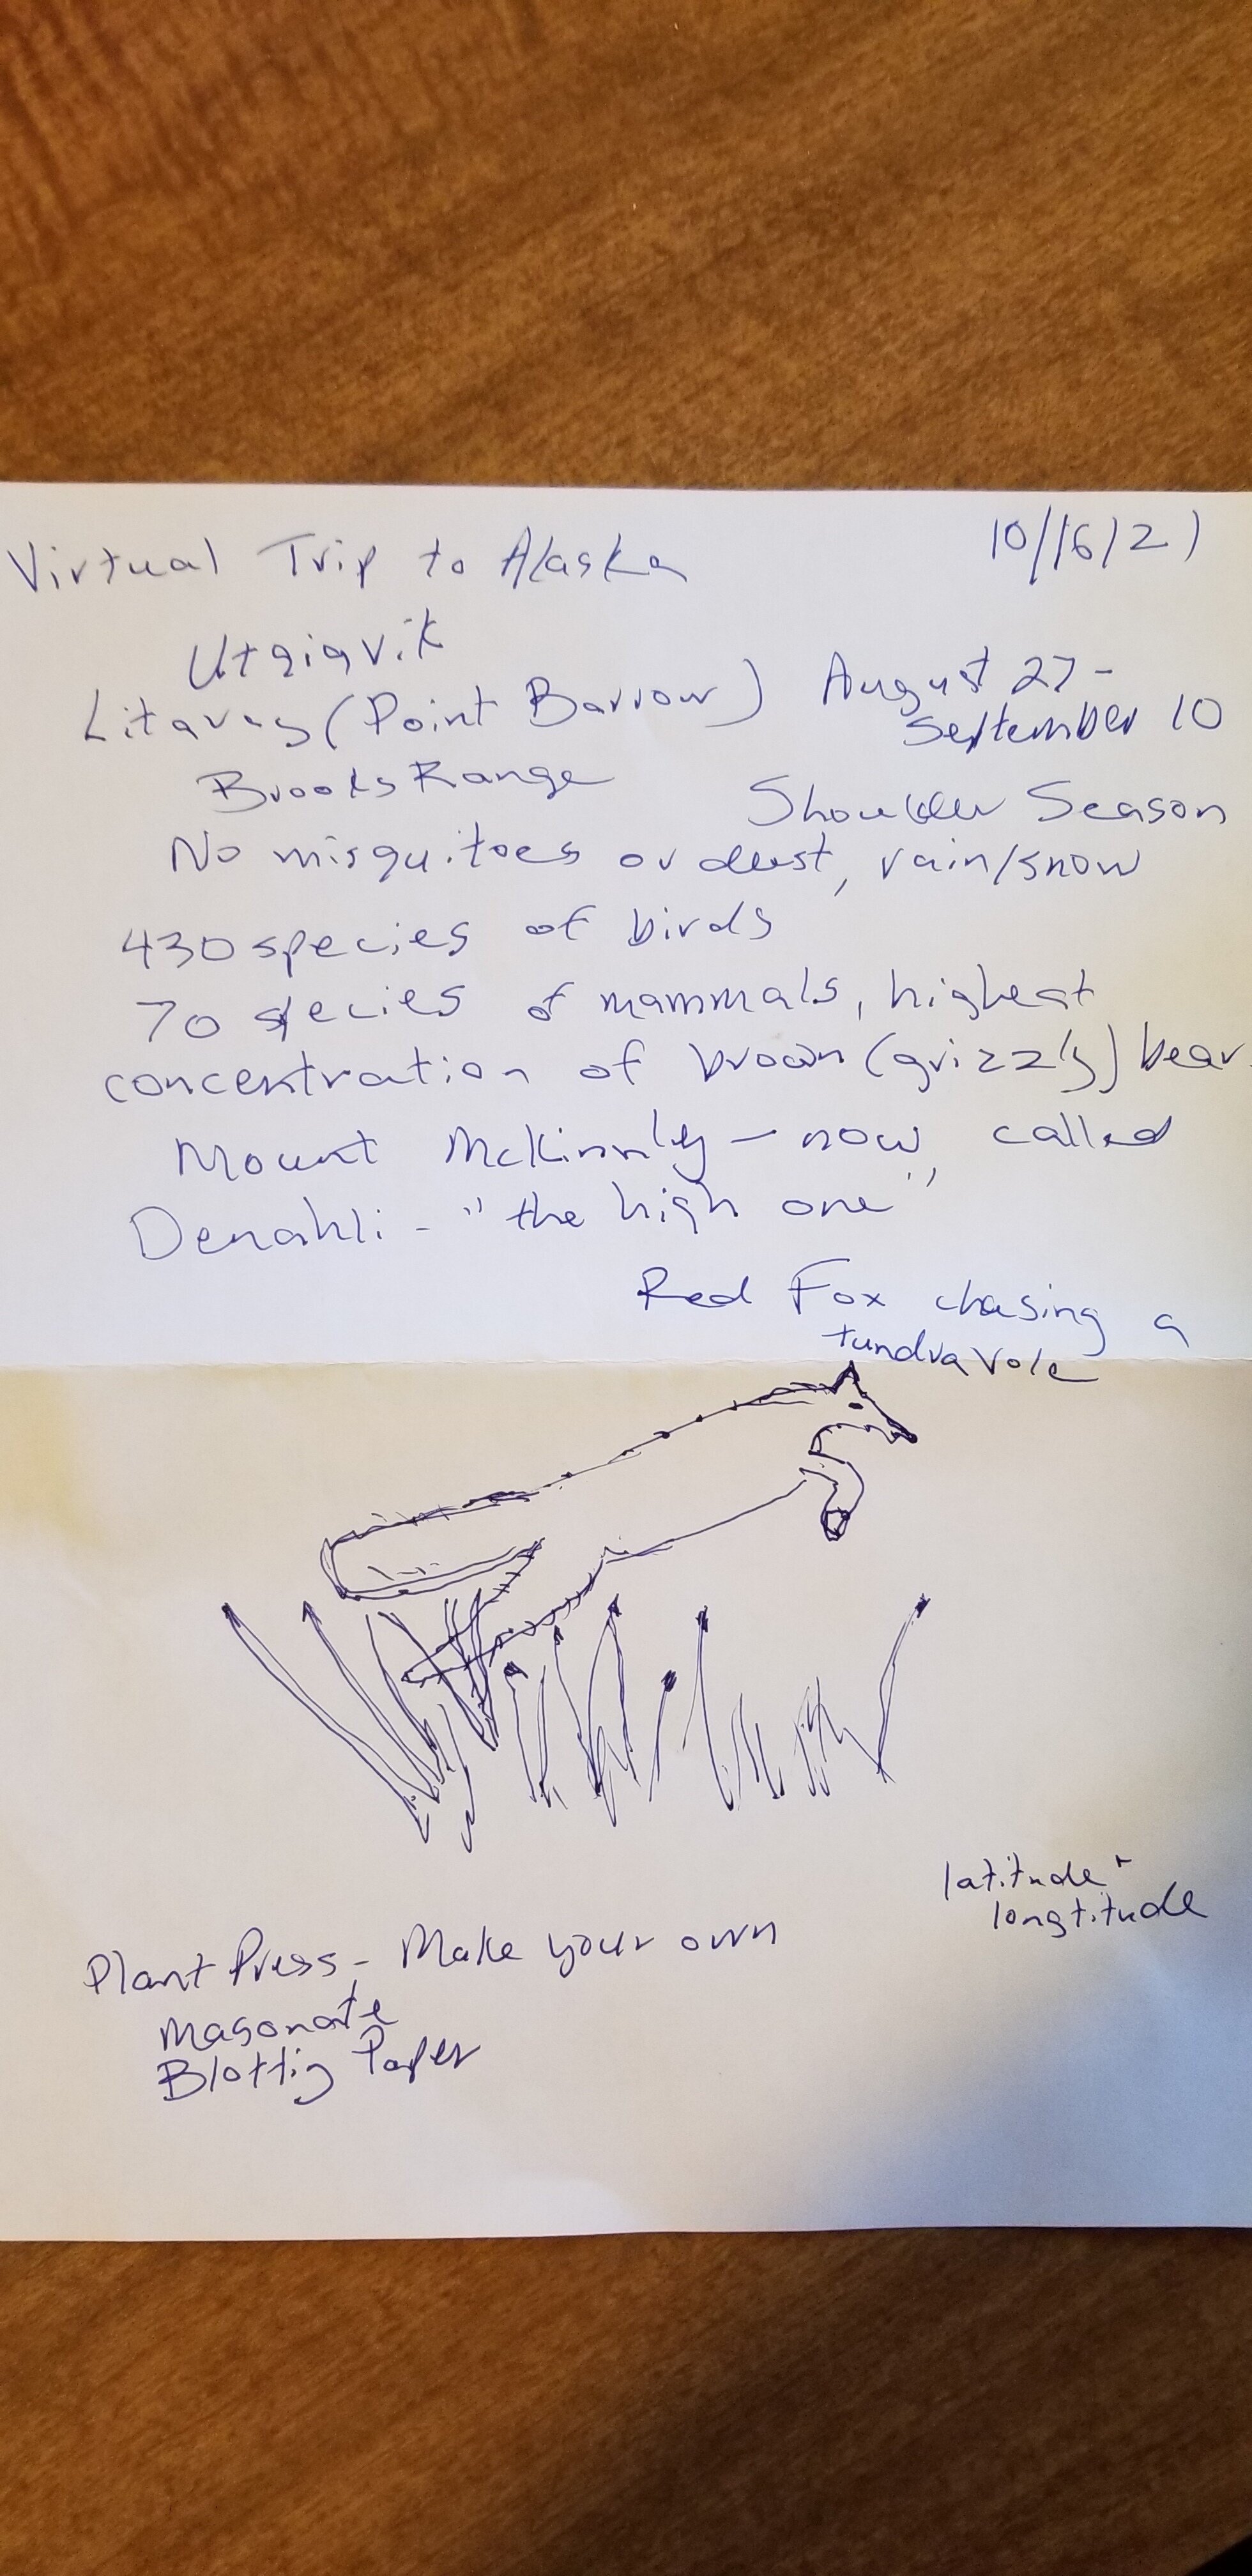 Virtual Trip to Alaska
10/16/21
Utqiqvik
(Point Barrow)
August 27 -
September 10
Brooks Range
Shoulder Season
No misquitoes or dust, rain/snow
430 species of birds
70 species of mammals, highest
concentration of brown (grizzly) bear
Mount McKinnly - now called
Denahli - "the high one"
Red Fox chasing a
tundra vole
latitude +
longtitude
Plant Press - Make your own
Masonate
Blottig Paper